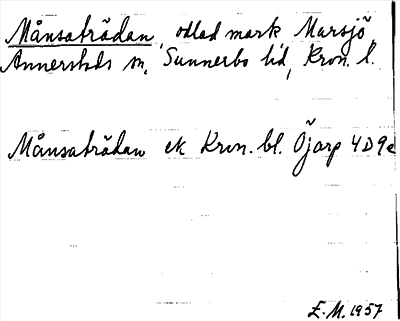 Månsaträdan, odlad mark Marsjö,
Annerstads sn, Sunnerbo hd, Kron. l.
Månsaträdan ek Kron. bl. Öjarp 4D9c
E.M. 1957